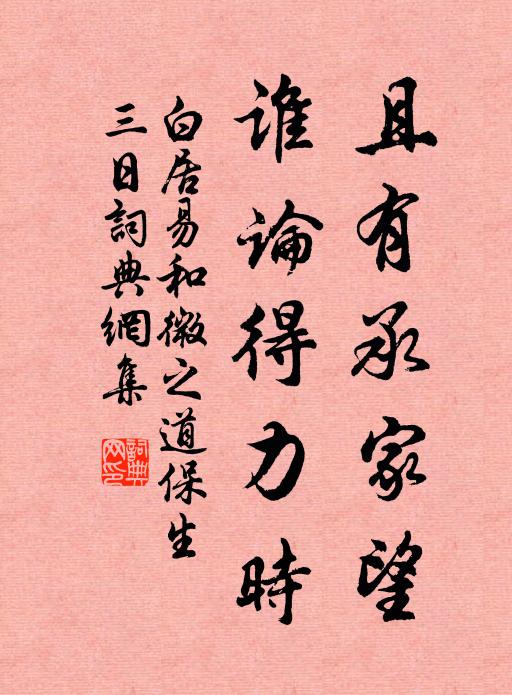 且有承家望
誰論得力時
白居易和微之道保生
三日詞典網集
詞典網印